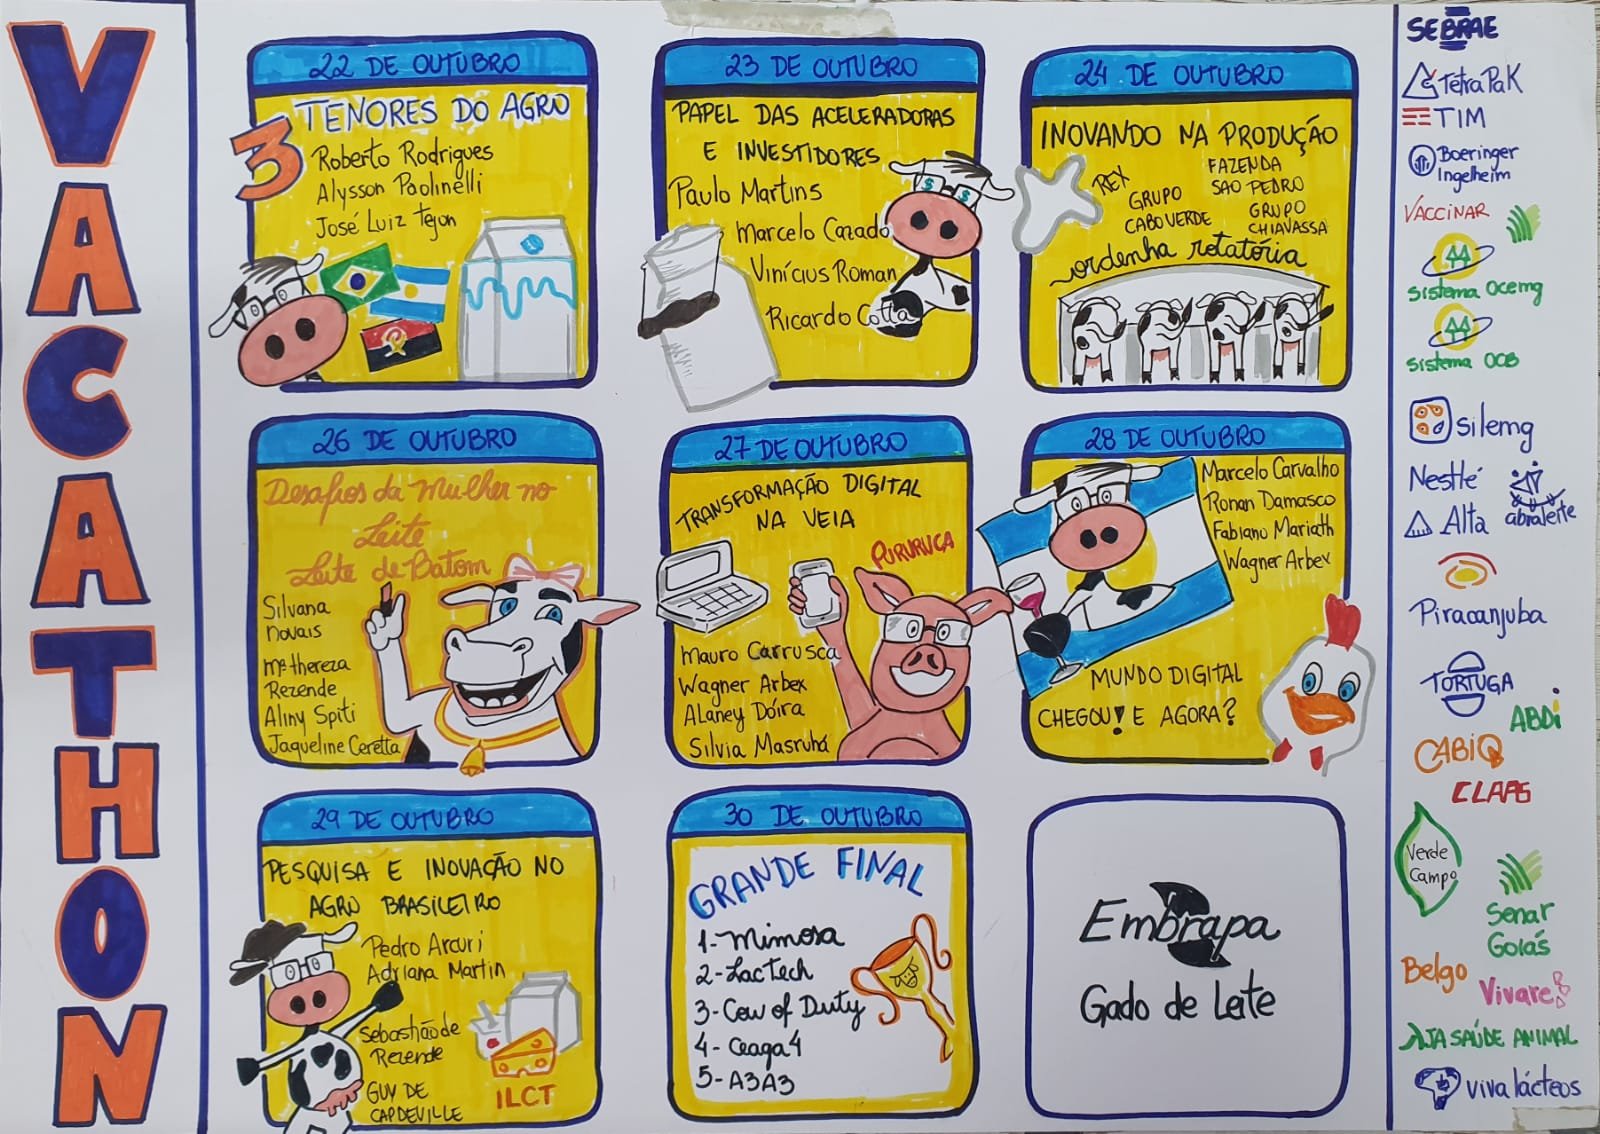 VACATHON
22 DE OUTUBRO
3 TENORES DO AGRO
Roberto Rodrigues
Alysson Paolinelli
José Luiz Tejon
23 DE OUTUBRO
PAPEL DAS ACELERADORAS
E INVESTIDORES
Paulo Martins
Marcelo Cazado
Vinícius Roman
Ricardo Cotta
24 DE OUTUBRO
INOVANDO NA PRODUÇÃO
REX
GRUPO
CABO VERDE
FAZENDA
SAO PEDRO
GRUPO
CHIAVASSA
ordenha rotatória
26 DE OUTUBRO
Desafios da Mulher no
Leite
Leite de Batom
Silvana
novais
Mª thereza
Rezende
Aliny Spiti
Jaqueline Ceretta
27 DE OUTUBRO
TRANSFORMAÇÃO DIGITAL
NA VEIA
PURURUCA
Mauro Carrusca
Wagner Arbex
ALaney Dóira
Silvia Masruhá
28 DE OUTUBRO
Marcelo Carvalho
Ronan Damasco
Fabiano Mariath
Wagner Arbex
MUNDO DIGITAL
CHEGOU! E AGORA?
29 DE OUTUBRO
PESQUISA E INOVAÇÃO NO
AGRO BRASILEIRO
Pedro Arcuri
Adriana Martin
Sebasthão de
Rezende
GUY DE
CAPDEVILLE
ILCT
30 DE OUTUBRO
GRANDE FINAL
1- Mimosa
2- LacTech
3- Cow of Duty
4- Ceaga4
5- A3A3
Embrapa
Gado de Leite
SEBRAE
TetraPaK
TIM
Boeringer
Ingelheim
VACCINAR
Sistema Ocemg
Sistema OCB
Silemg
Nestlé
abraleite
Alta
Piracanjuba
TORTUGA
ABDi
CABIQ
Verde
Campo
Senar
Goiás
Belgo
Vivare
JA SAÚDE ANIMAL
viva lácteos